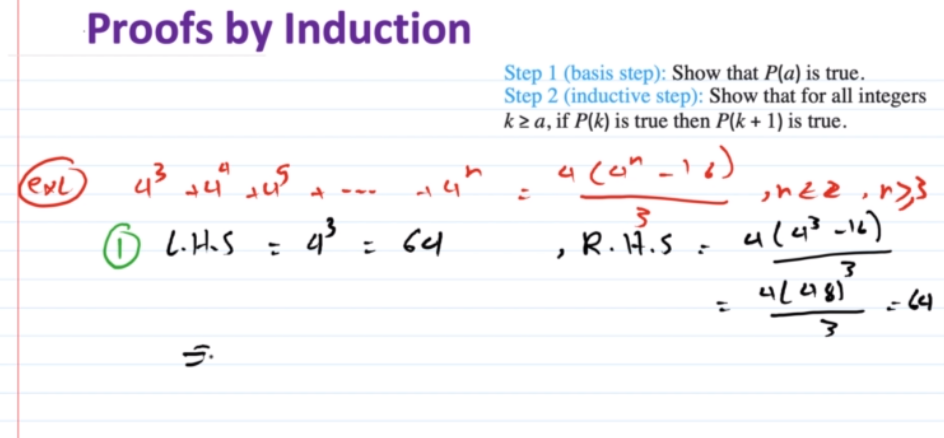 Proofs by Induction
Step 1 (basis step): Show that P(a) is true.
Step 2 (inductive step): Show that for all integers
k ≥ a, if P(k) is true then P(k + 1) is true.
ex1 4³ + 4⁴ + 4⁵ + ---- + 4ⁿ = 4(4ⁿ - 16) / 3 , n ∈ Z , n ≥ 3
① L.H.S = 4³ = 64 , R.H.S = 4(4³ - 16) / 3
= 4(48) / 3 = 64
⇒